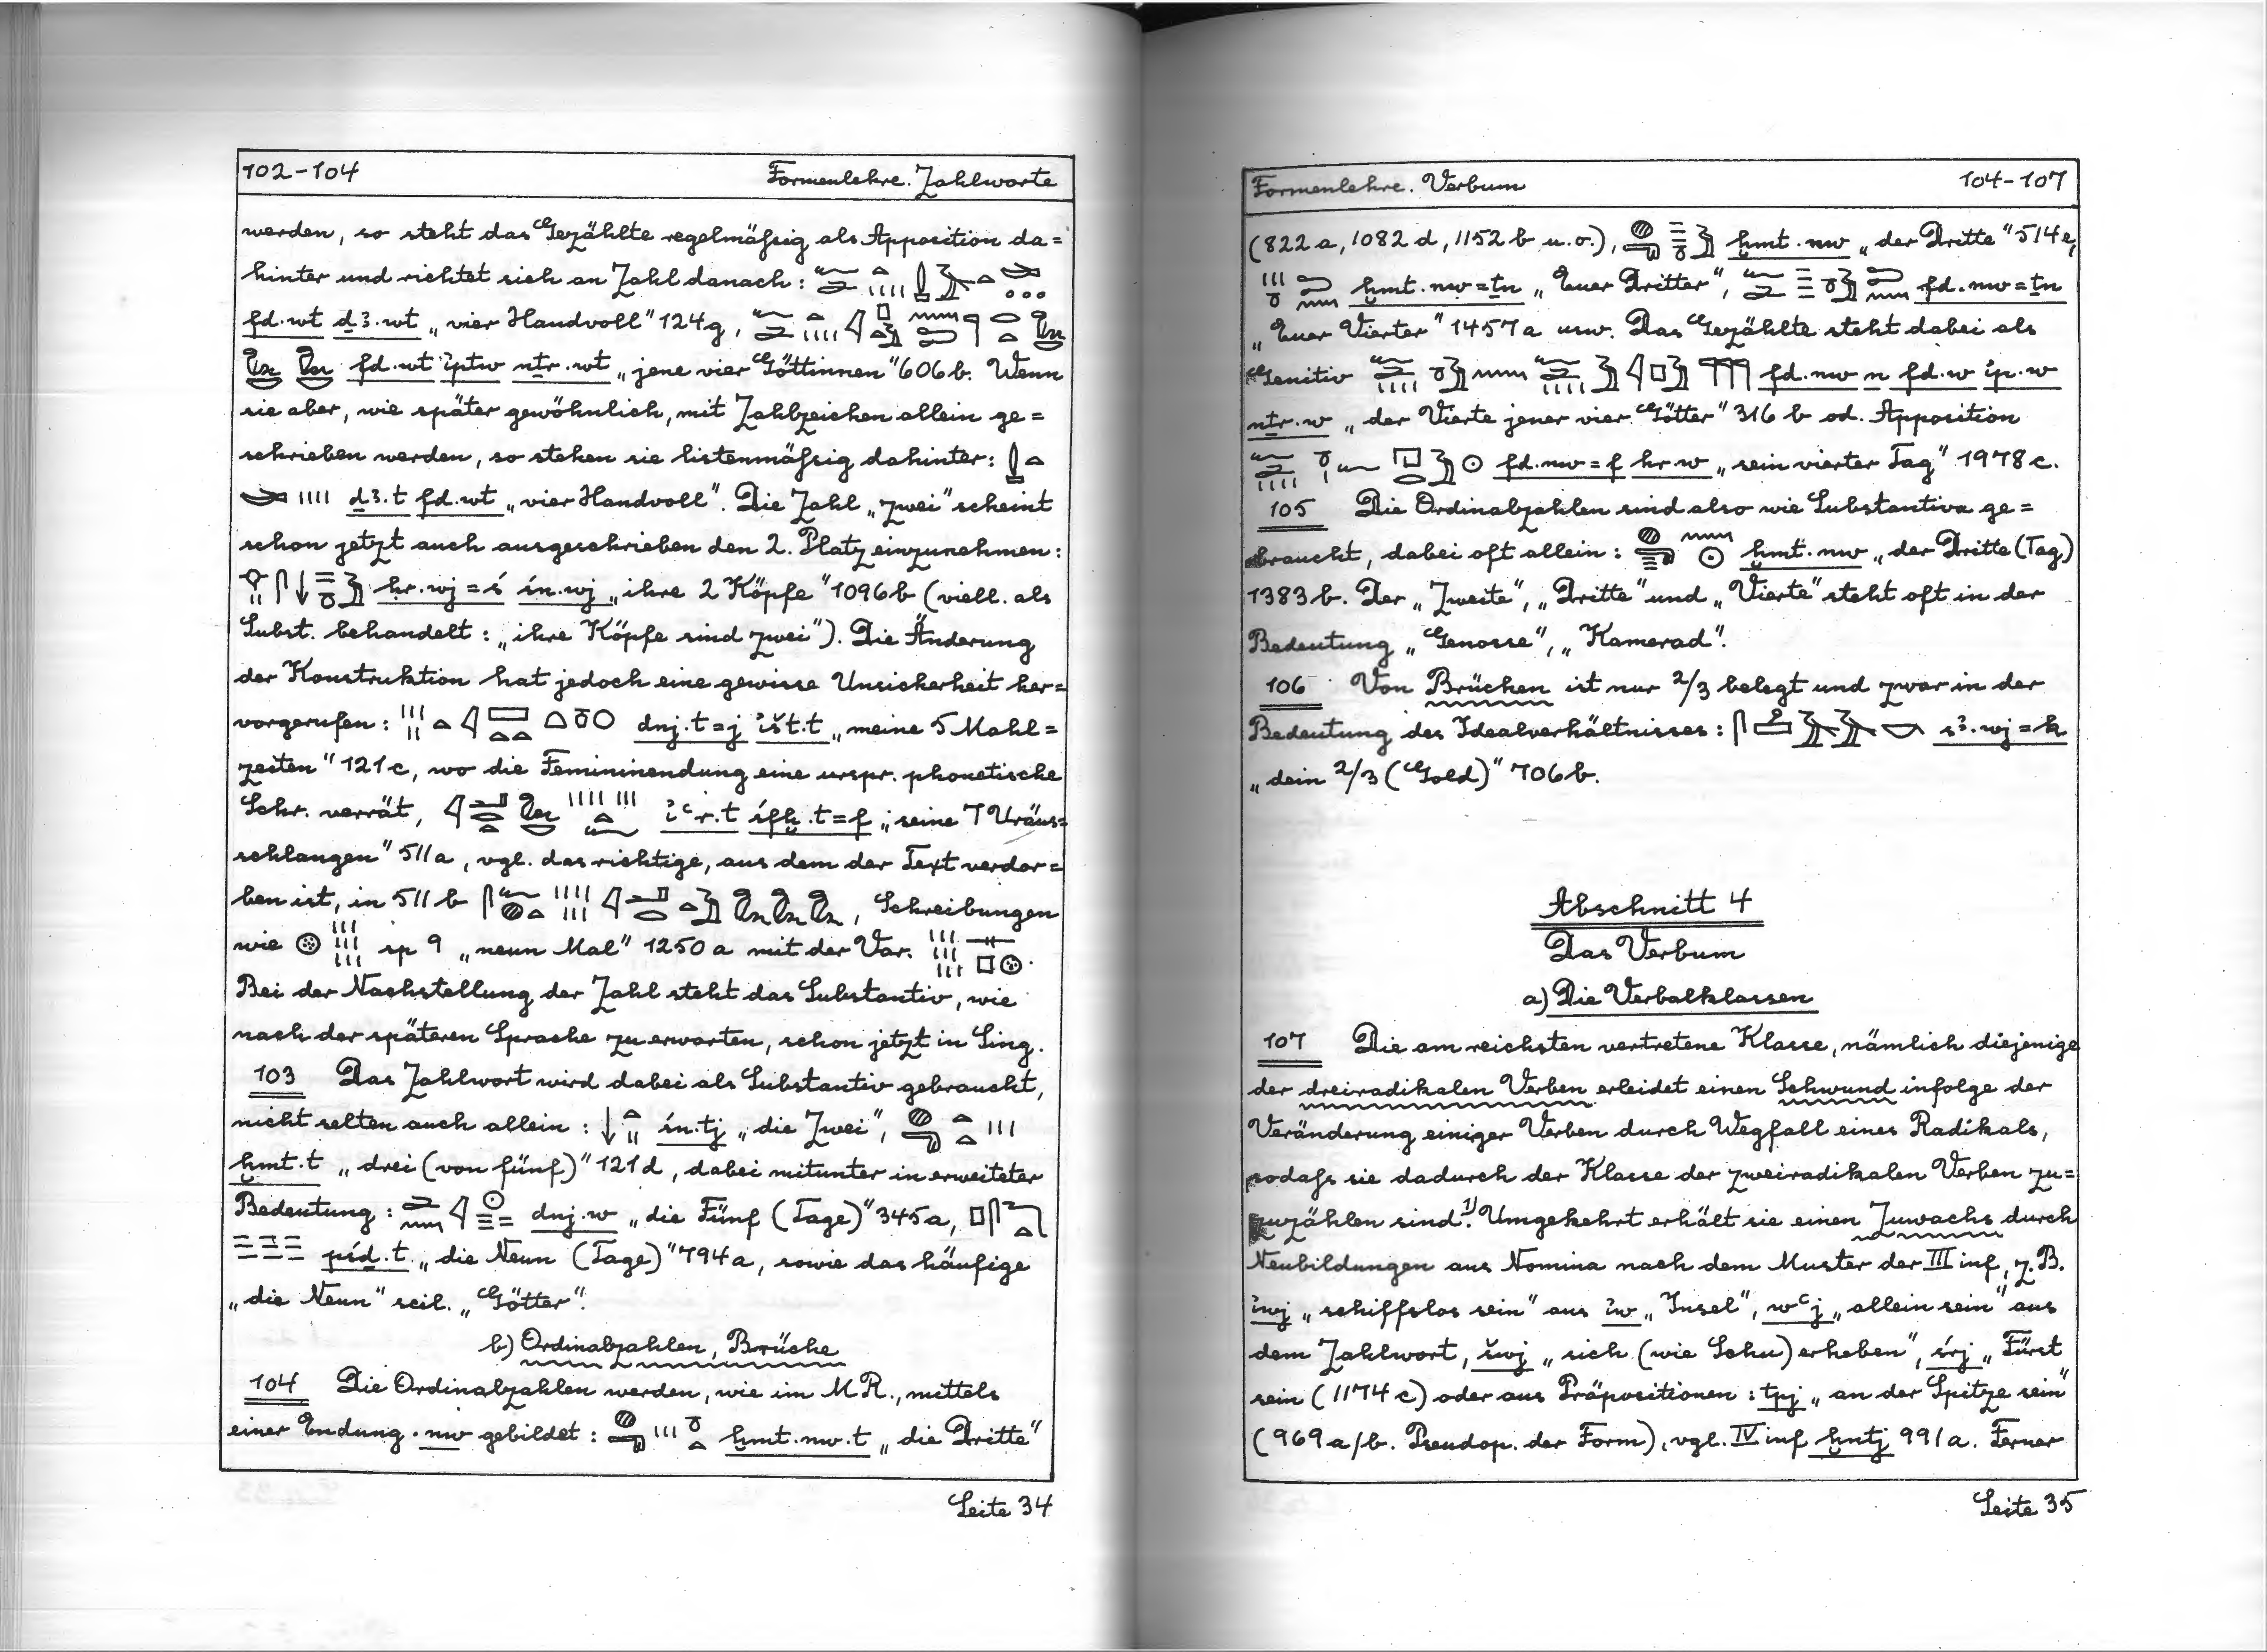 102-104 Formenlehre. Zahlworte
werden, so steht das Gezählte regelmäßig als Apposition da=
hinter und richtet sich an Zahl danach:
fd.wt ḏꜣ.wt „vier Handvoll" 124g,
fd.wt ỉptw nṯr.wt „jene vier Göttinnen" 606b. Wenn
sie aber, wie später gewöhnlich, mit Zahlzeichen allein ge=
schrieben werden, so stehen sie listenmäßig dahinter:
ḏꜣ.t fd.wt „vier Handvoll". Die Zahl „zwei" scheint
schon jetzt auch ausgeschrieben den 2. Platz einzunehmen:
ḥr.wj=ś śn.wj „ihre 2 Köpfe" 1096b (viell. als
Subst. behandelt: „ihre Köpfe sind zwei"). Die Änderung
der Konstruktion hat jedoch eine gewisse Unsicherheit her=
vorgerufen: dnj.t=j ỉšt.t „meine 5 Mahl=
zeiten" 121c, wo die Femininendung eine urspr. phonetische
Schr. verrät, ỉꜥr.t śfḫ.t=f „seine 7 Uräus=
schlangen" 511a, vgl. das richtige, aus dem der Text verdor=
ben ist, in 511b , Schreibungen
wie sp 9 „neun Mal" 1250a mit der Var.
Bei der Nachstellung der Zahl steht das Substantiv, wie
nach der späteren Sprache zu erwarten, schon jetzt in Sing.
103 Das Zahlwort wird dabei als Substantiv gebraucht,
nicht selten auch allein: śn.tj „die Zwei",
ḫmt.t „drei (von fünf)" 121d, dabei mitunter in erweiteter
Bedeutung: dnj.w „die Fünf (Tage)" 345a,
pśḏ.t „die Neun (Tage)" 794a, sowie das häufige
„die Neun" scil. „Götter".
b) Ordinalzahlen, Brüche
104 Die Ordinalzahlen werden, wie im M R., mittels
einer Endung .nw gebildet: ḫmt.nw.t „die Dritte"
Seite 34
Formenlehre. Verbum 104-107
(822a, 1082d, 1152b u.o.), ḫmt.nw „der Dritte" 514e,
ḫmt.nw=ṯn „Euer Dritter", fd.nw=ṯn
„Euer Vierter" 1457a usw. Das Gezählte steht dabei als
Genitiv fd.nw n fd.w ỉp.w
nṯr.w „der Vierte jener vier Götter" 316b od. Apposition
fd.nw=f hr.w „sein vierter Tag" 1978c.
105 Die Ordinalzahlen sind also wie Substantiva ge=
braucht, dabei oft allein: ḫmt.nw „der Dritte (Tag)
1383b. Der „Zweite", „Dritte" und „Vierte" steht oft in der
Bedeutung „Genosse", „Kamerad".
106 Von Brüchen ist nur 2/3 belegt und zwar in der
Bedeutung des Idealverhältnisses: sꜣ.wj=k
„dein 2/3 (Gold)" 706b.
Abschnitt 4
Das Verbum
a) Die Verbalklassen
107 Die am reichsten vertretene Klasse, nämlich diejenige
der dreiradikalen Verben erleidet einen Schwund infolge der
Veränderung einiger Verben durch Wegfall eines Radikals,
sodaß sie dadurch der Klasse der zweiradikalen Verben zu=
zuzählen sind.1) Umgekehrt erhält sie einen Zuwachs durch
Neubildungen aus Nomina nach dem Muster der III inf, z.B.
ỉwj „schiffslos sein" aus ỉw „Insel", wꜥj „allein sein" aus
dem Zahlwort, šwj „sich (wie Schu) erheben", śrj „Fürst
sein (1174c) oder aus Präpositionen: tpj „an der Spitze sein"
(969a/b. Pseudop. der Form), vgl. IV inf ḫntj 991a. Ferner
Seite 35